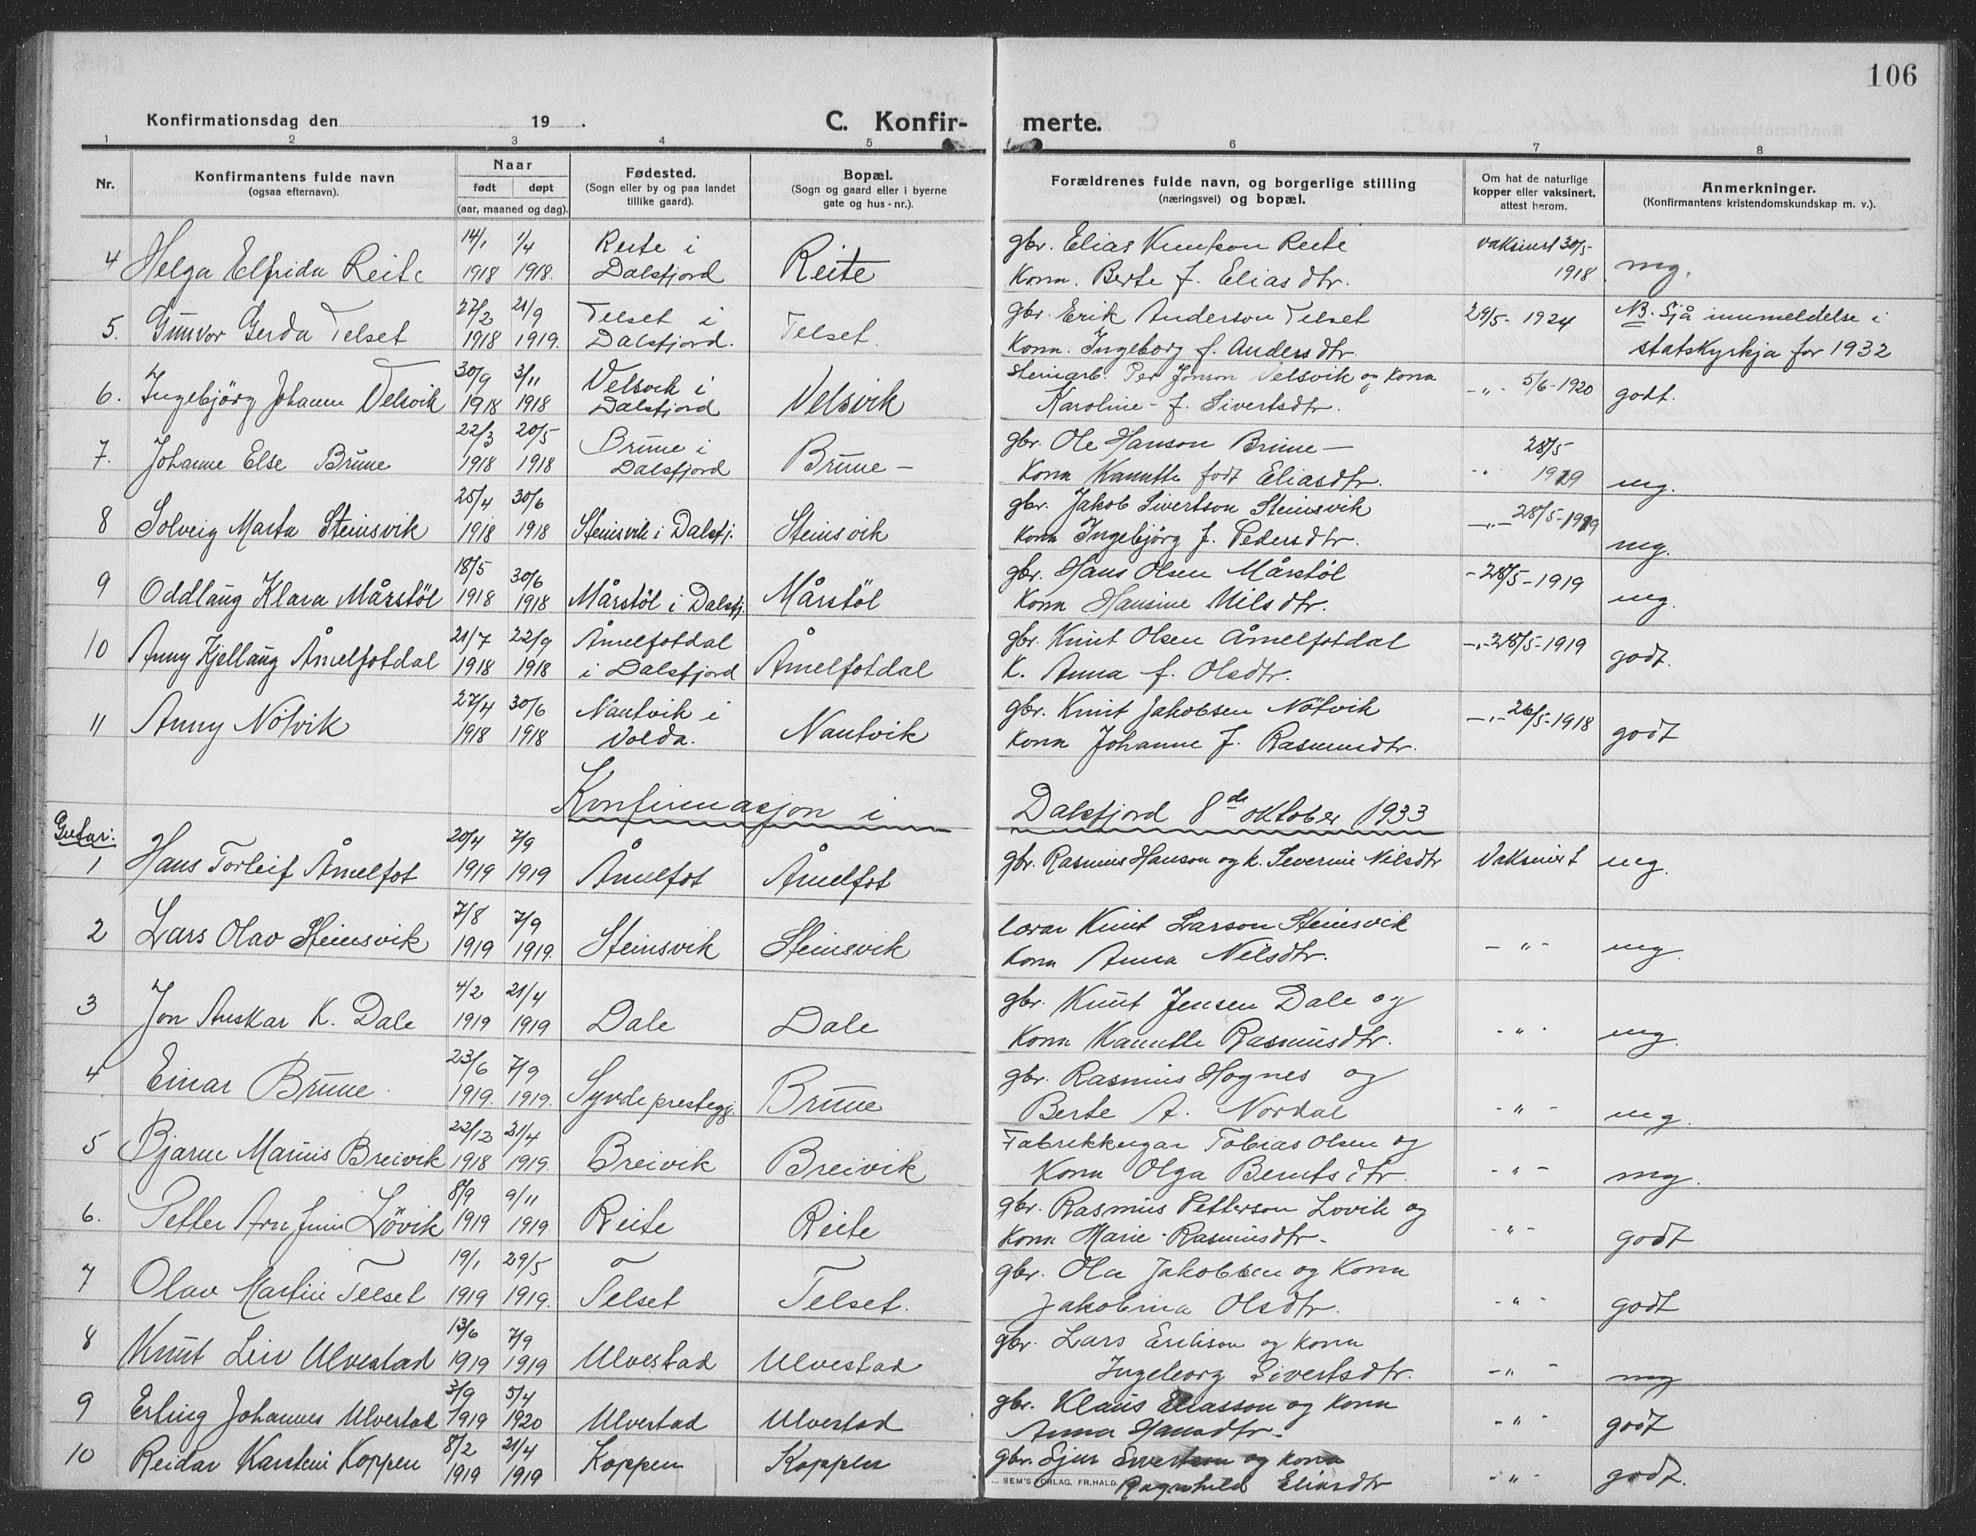 106
Konfirmationsdag den 19 .
C. Konfir- merte.
1 2 3 4 5 6 7 8
Nr.
Konfirmantens fulde navn
(ogsaa efternavn).
Naar
født døpt
(aar, maaned og dag).
Fødested.
(Sogn eller by og paa landet
tillike gaard).
Bopæl.
(Sogn og gaard eller i byerne
gate og hus-nr.).
Forældrenes fulde navn, og borgerlige stilling
(næringsvei) og bopæl.
Om hat de naturlige
kopper eller vaksinert,
attest herom.
Anmerkninger.
(Konfirmantens kristendomskundskap m. v.).
14/1 1/4 Reite i gbr. Elias Knutson Reite vaksinert 30/5-
4 Helga Elfrida Reite 1918 1918. Dalsfjord Reite Kona. Berte f. Eliasdtr. 1918 mg.
27/2 21/9 Telset i gbr. Erik Anderson Telset 29/5- 1924 NB. Sjå innmeldelse i
5. Gunvor Gerda Telset 1918 1919. Dalsfjord. Telset. Kona. Ingeborg f. Andersdtr. statskyrkja for 1932
30/9 3/11 Velsvik i Steinarb. Per Jonson Velsvik og Kona
6. Ingebjørg Johanne Velsvik 1918 1918 Dalsfjord Velsvik Karoline - f. Sivertsdtr. -"- 5/6-1920 godt.
22/3 20/5 Brune i gbr. Ole Hanson Brune - 28/5
7. Johanne Else Brune 1918 1918 Dalsfjord Brune - Kona Kanutte født Eliasdtr. -" 1919 mg.
25/4 30/6 gbr. Jakob Sivertson Steinsvik
8 Solveig Marta Steinsvik 1918 1918 Steinsvik i Dalsfj. Steinsvik Kona Ingebjørg f. Pedersdtr. -"- 28/5-1919 mg.
18/5 30/6 gbr. Hans Olsen Mårstøl
9 Oddlaug Klara Mårstöl 1918 1918 Mårstöl i Dalsfj. Mårstöl Kona Hansine Nilsdtr. - 28/5-1919 mg.
21/7 22/9 Åmelfotdal gbr. Knut Olsen Åmelfotdal
10 Anny Kjellaug Åmelfotdal 1918 1918 i Dalsfjord Åmelfotdal K. Anna f. Olsdtr. -"-28/5-1919 godt.
27/4 30/6 Nautvik i gbr. Knut Jakobsen Nötvik
11 Anny Nötvik 1918 1918 Volda. Nautvik Kona Johanne f. Rasmusdtr. -"-26/5-1918 godt
Konfirmasjon i Dalsfjord 8de oktober 1933
Gutar:
20/4 7/9
1 Hans Torleif Åmelfot 1919 1919 Åmelfot Åmelfot gbr. Rasmus Hanson og k. Severine Nilsdtr Vaksinert mg.
7/8 7/9 Knut Larson Steinsvik
2 Lars Olav Steinsvik 1919 1919. Steinsvik Steinsvik Kona Anna Nilsdtr. -"- mg.
4/2 21/4 gbr. Knut Jensen Dale og
3 Jon Anskar K. Dale 1919 1919 Dale Dale Kona Kanutte Rasmusdtr. -"- mg.
23/6 7/9 gbr. Rasmus Hognes og
4 Einar Brune 1919. 1919. Syvde prestegj. Brune Berte A. Nordal -"- mg.
22/12 21/4 Fabrikkeigar Tobias Olsen og
5 Bjarne Marius Breivik 1918 1919. Breivik Breivik Kona Olga Berntsdtr. -"- mg.
8/9 9/11 gbr. Rasmus Petterson Lovik og
6. Petter Arn Lövik 1919 1919 Reite Reite Kona Marie Rasmusdtr. -"- godt
19/1 29/5 gbr. Ola Jakobsen og Kona
7 Olav Martin Telset 1919 1919. Telset Telset. Jakobina Olsdtr. -"- godt
13/6 7/9 gbr. Lars Erikson og Kona
8 Knut Leiv Ulvestad 1919 1919 Ulvestad Ulvestad Ingeborg Sivertsdtr. -"- mg
3/9 5/4 gbr. Klaus Eliasson og Kona
9 Erling Johannes Ulvestad 1919 1920 Ulvestad Ulvestad Anna Hansdtr. -"- godt
8/2 21/4 gbr. Sjur Sivertson og Kona
10 Reidar Karstein Koppen 1919 1919 Koppen Koppen Ragnhild Eliasdtr -"- godt.
SEM'S FORLAG, FR.HALD.